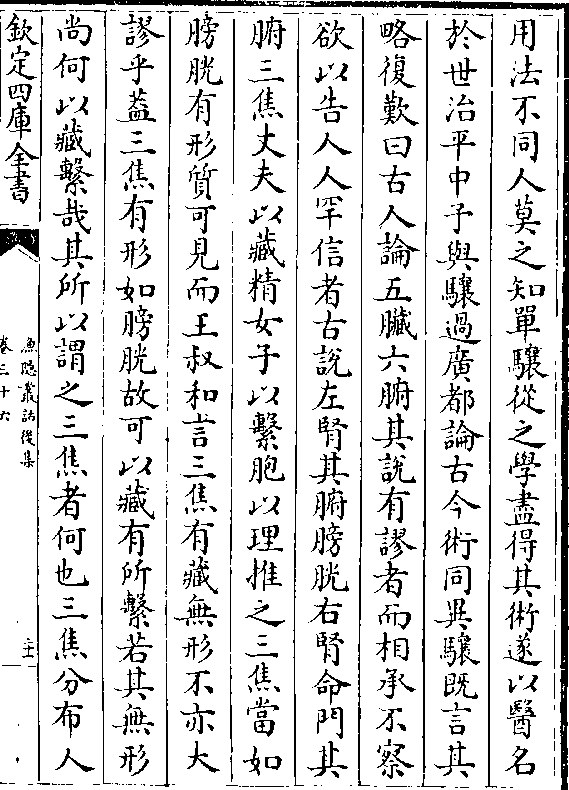 用法不同人莫之知單驤從之學盡得其術遂以醫名
於世治平中予與驤過廣都論古今術同異驤既言其
略復歎曰古人論五臟六腑其說有謬者而相承不察
欲以告人人罕信者古說左腎其腑膀胱右腎命門其
腑三焦丈夫以藏精女子以繫胞以理推之三焦當如
膀胱有形質可見而王叔和言三焦有藏無形不亦大
謬乎葢三焦有形如膀胱故可以藏有所繫若其無形
尚何以藏繫哉其所以謂之三焦者何也三焦分布人
欽定四庫全書
漁隱叢話後集
卷三十六